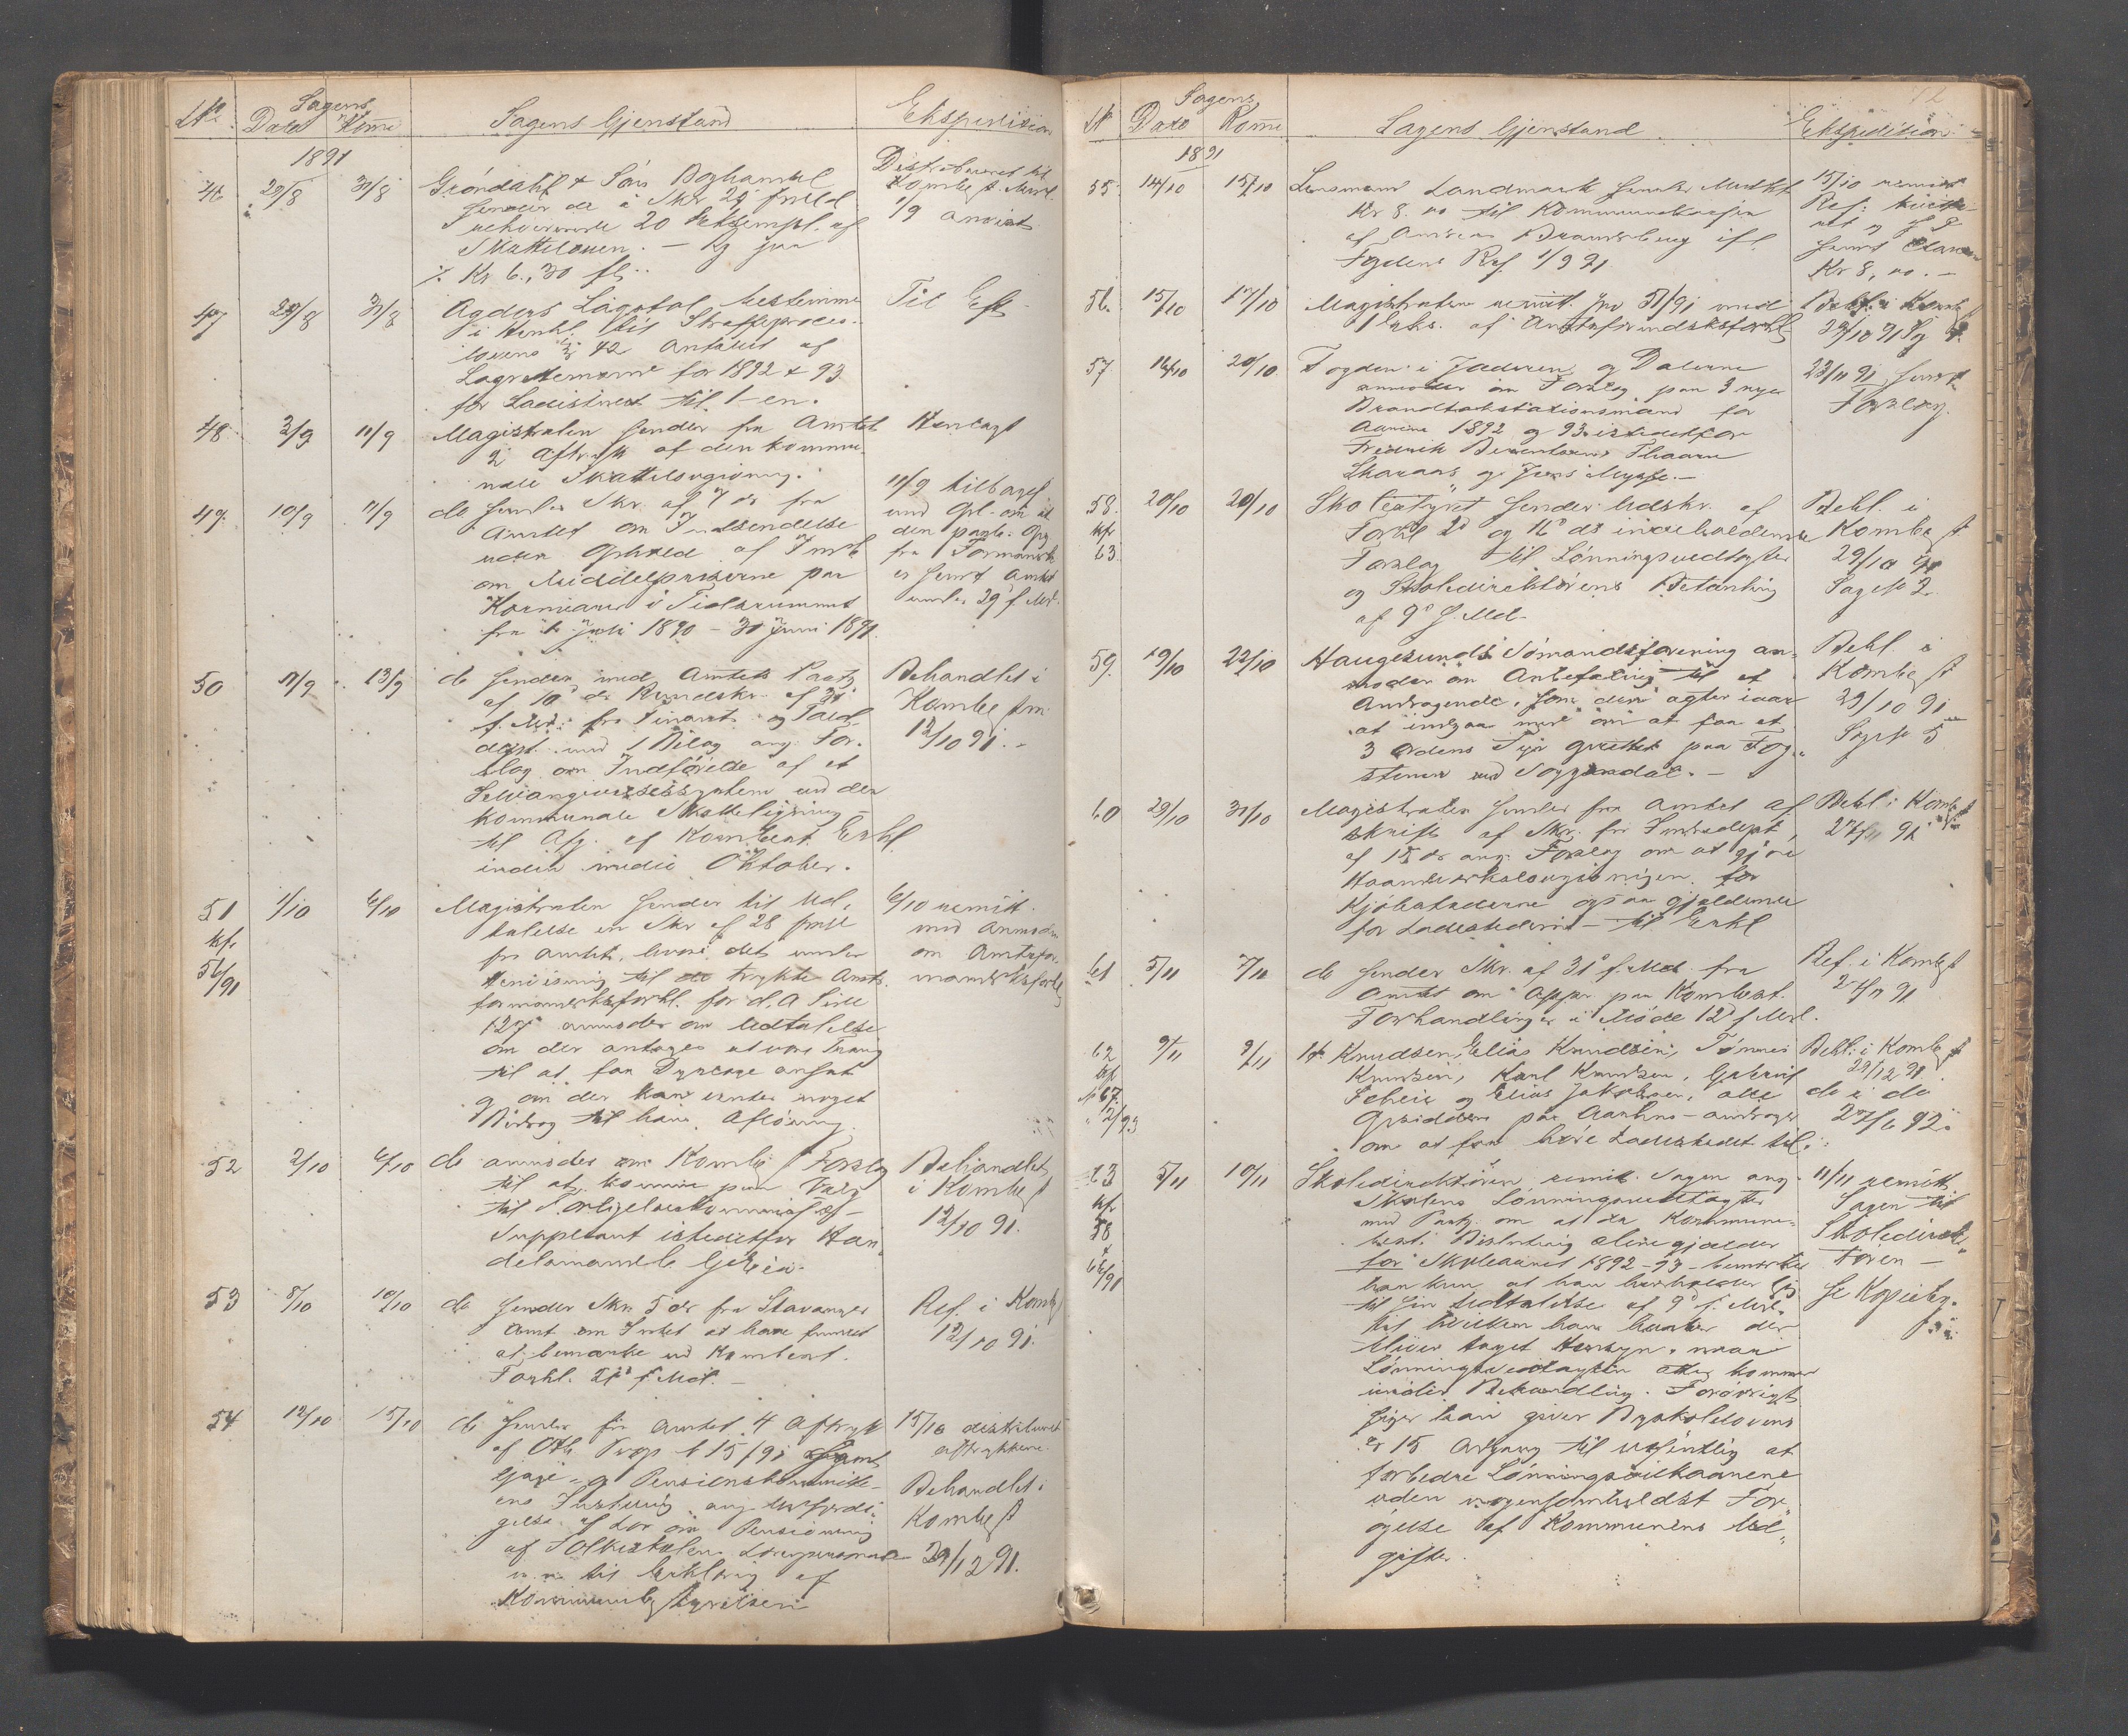 Sagens
No Dato Komne Sagens Gjenstand Ekspedition
1891
46 29/8 31/8 Gröndahl & Söns Boghandel
sender de i Skr 29 Juli d
rekvirerede 20 Eksempl. af
Skattelouen. — Rg paa
% Kr 6,30 fl..
Distribueret til
Kombest. Medl.
1/9 anvist
47 29/8 31/8 Agders Lagstol bestemme
i Henh. til Straffeproces-
lovens § 42 Antallet af
Lagrettemænd for 1892 & 93
for Ladestedet til 1-en.
Til Eft.
48 2/9 11/9 Magistraten sender fra Amtet
2 Aftryk af den kommu
nale Skattelovgivning.
Henlagt
49. 10/9 11/9 do sender Skr. af 7 ds fra
Amtet om Indsendelse
uden Ophold af Indb.
om Middelpriserne paa
Kornvarer i Tidsrummet
fra 1 Juli 1890 – 30 Juni 1891.
11/9 tilbagef.
med Opl. om at
den pagte. Opg
fra Formandsk
er sendt Amtet
under 29 f. Md.
50 11/9 13/9 do sender med Amtets Paateg
af 10 ds Rundskr. af 31
f. Md. fra Finants og Told
dept. med 1 Bilag ang. For-
slag om Indförelse af et
Selvangivelsessystem ved den
kommunale Skatteligning
til Afg. af Kombest. Erkl.
inden medio Oktober.
Behandlet i
Kombest. m.
12/10 91. –
51 kfr 56/91 1/10 6/10 Magistraten sender til Ud-
talelse en Skr af 28 f Md
fra Amtet, hvori det under
Henvisning til de trykte Amts-
formandskabsforhl. for d. A. Side
127 anmoder om Udtalelse
om der antages at vare Trang
til at faa Dyrlæge ansat
og om der kan ventes noget
Bidrag til hans Aflönning.
6/10 remitt.
med Anmodn
om Amtsfor-
mandskabsforhl
52 2/10 6/10 do anmoder om Kombest. Forslag
til at komme paa Valg
til Forligelseskommissær-
Suppleant istedetfor Han-
delsmand
Behandlet
i Kombest
12/10 91.
53 8/10 10/10 do sender Skr 5 ds fra Stavanger
Amt om Intet at have fundet
at bemærke ved Kombest.
Forhl. 21 f. Md. –
Ref. i Kombest
12/10 91.
54 12/10 15/10 do sender fra Amtet 4 Aftryk
af Oth. Prop. No 15/91 samt
Gage- og Pensionskomite-
ens Indstilling ang. Udfærdi-
gelse af Lov om Pensionering
af Folkeskolens Lærerpersonale
m. m. til Erklæring af
Kommunebestyrelsen
15/10 distribueret
aftrykkene.
Behandlet i
Kombest
29/12 91.
Sagens
No Dato Komne Sagens Gjenstand Ekspedition
1891
55 14/10 15/10 Lensmand Landmark sender Mulkt
Kr 8.00 til Kommunekassen
af Andreas Brandsberg ifl.
Fogdens Res. 1/9 91
15/10 remitt
Ref:
Kr 8,00. –
56. 15/10 17/10 Magistraten remitt. No 51/91 med
1 Eks. af Amtsformandskabsforhl
Behl. i Kombest
29/10 91 Sg
57 16/10 20/10 Fogden i Jæderen og Dalerne
anmoder om Forslag paa 3 nye
Brandtakstationsmænd for
Aarene 1892 og 93 istedetfor
Fredrik
og Jens
23/11 91 sendt
Forslag.
58. kfr 63 20/10 20/10 Skolestyret sender Udskr. af
Forhl 2 og 16 ds indeholdende
Forslag til Lönningsvedtægter
og Skoledirektörens Betænkning
af 9 f. Md.
Behl. i
Kombest
29/10 91
Sag No 2.
59. 19/10 22/10 Haugesunds Sömandsforening an-
moder om Anbefaling til et
Andragende, som den agter iaar
at indgaa med om at faa et
3 Ordens Fyr oprettet paa Fog-
stenen ved Soggendal. –
Behl. i
Kombest
29/10 91
Sag No 5
60 29/10 31/10 Magistraten sender fra Amtet Af-
skrift af Skr. fra Indredept.
af 15 ds ang. Forslag om at gjöre
Haandverkslovgivningen for
Kjöbstæderne ogsaa gjældende
for Ladestederne – til Erkl
Behl. i Kombest
27/11 91
61 5/11 7/11 do sender Skr. af 31 f. Md. fra
Amtet om Appr. paa Kombest.
Forhandlinger i Möde 12 f Md.
Ref. i Kombest
27/11 91
62 kfr No 67. 12/93 9/11 9/11 H. Knudsen, Elias Knudsen, Tönnes
Knudsen, Karl Knudsen, Gabriel
og Elias Jakobsen, alle
Opsiddere paa – andrager
om at faa höre Ladestedet til.
Behl. i Kombest
29/12 91.
do i do
27/6 92.
63 kfr 58 & 66/91 5/11 10/11 Skoledirektören remitt. Sagen ang.
Skolens Lönningsvedtægter
med Paateg. om at da Kommune-
best. Beslutning alene gjælder
for Skoleaaret 1892–93 – bemærker
han kun at han henholder sig
til sin Udtalelse af 9 f. Md.
til hvilken han haaber der
bliver taget Hensyn, naar
Lönningsvedtægten atter kommer
under Behandling. Forövrigt
siger han giver Byskolelovens
§ 15 Adgang til væsentlig at
forbedre Lönningsvilkaarene
uden nogensomhelst For-
ögelse af Kommunens Ud-
gifter.
11/11 remitt.
Sagen til
Skoledirek-
tören –
Se Kopiebog